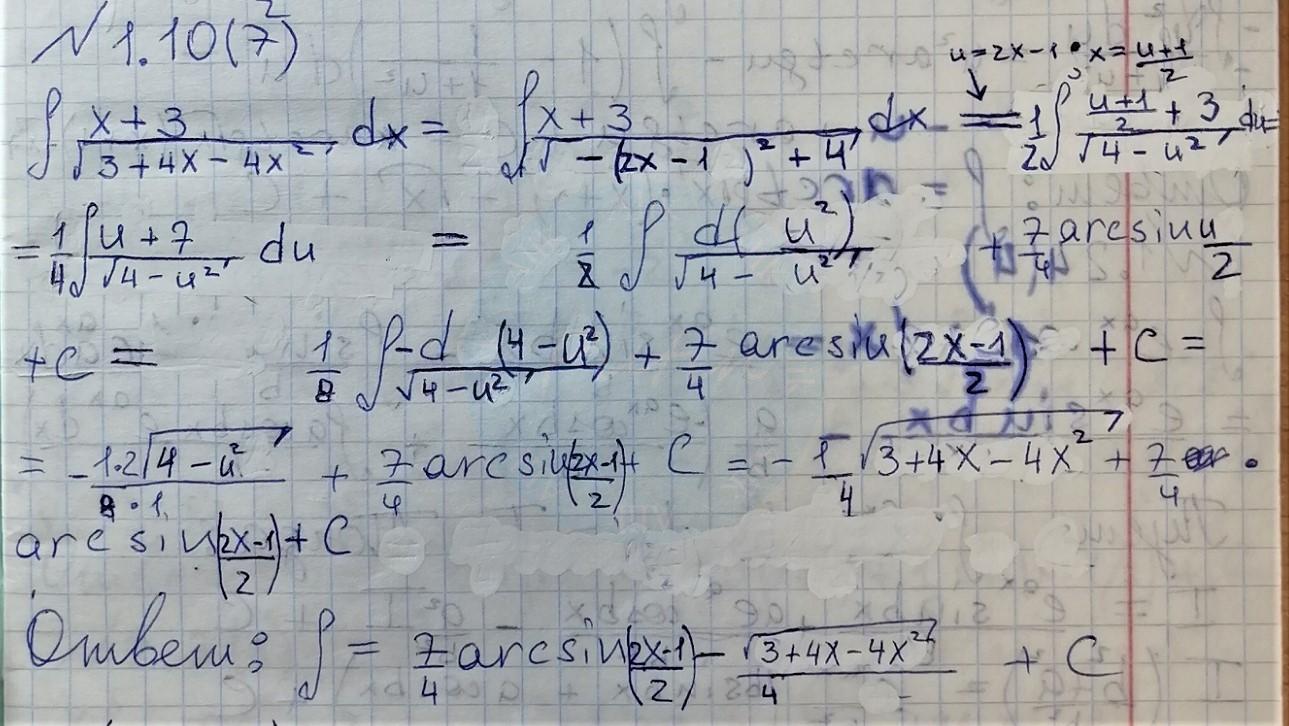 №1.10(7²)
u=2x-1; x=(u+1)/2
∫ (x+3)/√(3+4x-4x²) dx = ∫ (x+3)/√(-(2x-1)²+4) dx = 1/2 ∫ ((u+1)/2+3)/√(4-u²) du=
=1/4 ∫ (u+7)/√(4-u²) du = 1/8 ∫ d(u²)/√(4-u²) + 7/4 arcsin u/2
+C = 1/8 ∫ -d(4-u²)/√(4-u²) + 7/4 arcsin((2x-1)/2) + C =
= -(1·2√(4-u²))/(8·1) + 7/4 arcsin((2x-1)/2) + C = -1/4 √(3+4x-4x²) + 7/4 ·
arcsin((2x-1)/2) + C
Ответ: ∫ = 7/4 arcsin((2x-1)/2) - √(3+4x-4x²)/4 + C